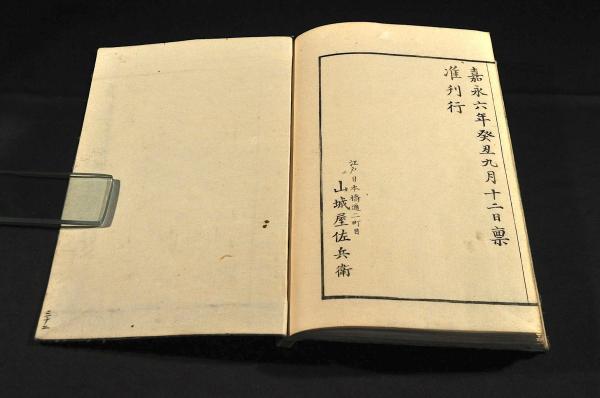 嘉永六年癸丑九月十二日禀
准刊行
江戸日本橋通二町目
山城屋佐兵衛